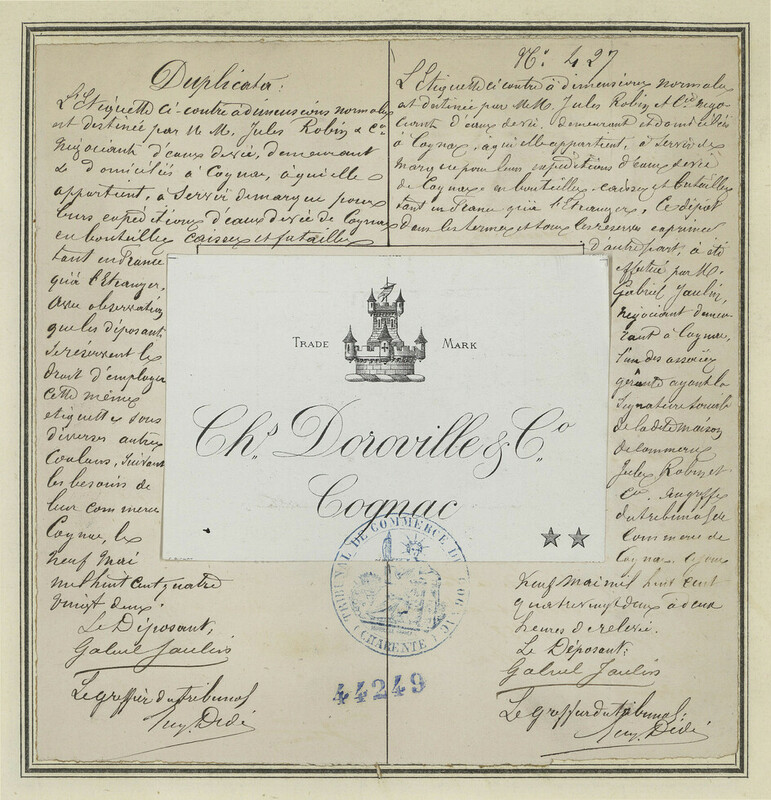 Duplicata:
L'Etiquette ci-contre à dimensions normales
est destinée par M M. Jules Robin & Cie
négociants d'eaux de vie, demeurant
& domiciliés à Cognac, à qui elle
appartient, à servir de marque pour
leurs expéditions d'eaux de vie de Cognac
en bouteilles caisses et futailles
tant en France
qu'à l'Etranger,
avec observation
que les déposants
se réservent le
droit d'employer
cette même
etiquette sous
diverses autres
couleurs, suivant
les besoins de
leur commerce
Cognac, le
neuf Mai
mil huit cent quatre
vingt deux.
Le Déposant,
Gabriel Jaulin
Le greffier du tribunal
Eug. Dédé
No. 427
L'Etiquette ci contre à dimensions normales
est destinée par M M. Jules Robin et Cie négo-
ciants d'eaux de vie, demeurant et domiciliés
à Cognac, à qui elle appartient, à servir de
marque pour leurs expéditions d'eaux de vie
de Cognac en bouteilles caisses et futailles
tant en France qu'à l'Etranger. Ce dépôt
dans les termes et sous les réserves exprimées
d'autre part, à été
effectué par M.
Gabriel Jaulin,
négociant demeu-
rant à Cognac,
l'un des associés
gérants ayant la
signature sociale
de la dite maison
de commerce
Jules Robin et
Co. au greffe
du tribunal de
commerce de
Cognac, ce jour
neuf Mai mil huit cent
quatre vingt deux à deux
heures de relevée.
Le Déposant:
Gabriel Jaulin
Le greffier du tribunal:
Eug. Dédé
TRADE MARK
Chs. Doroville & Co.
Cognac
TRIBUNAL DE COMMERCE DE COGNAC
(CHARENTE)
44249